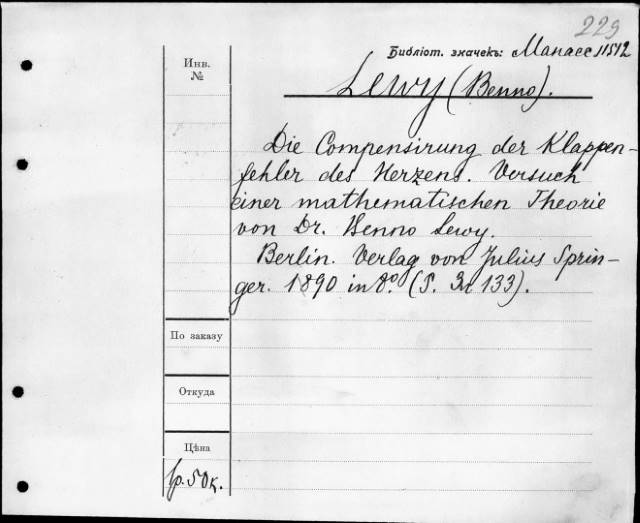 229
Библіот. значекъ: Манасс 11512
Инв.
№
Lewy (Benno).
Die Compensirung der Klappen-
fehler des Herzens. Versuch
einer mathematischen Theorie
von Dr. Benno Lewy.
Berlin. Verlag von Julius Sprin-
ger. 1890 in 8º. (S. 133).
По заказу
Откуда
Цѣна
1р. 50к.